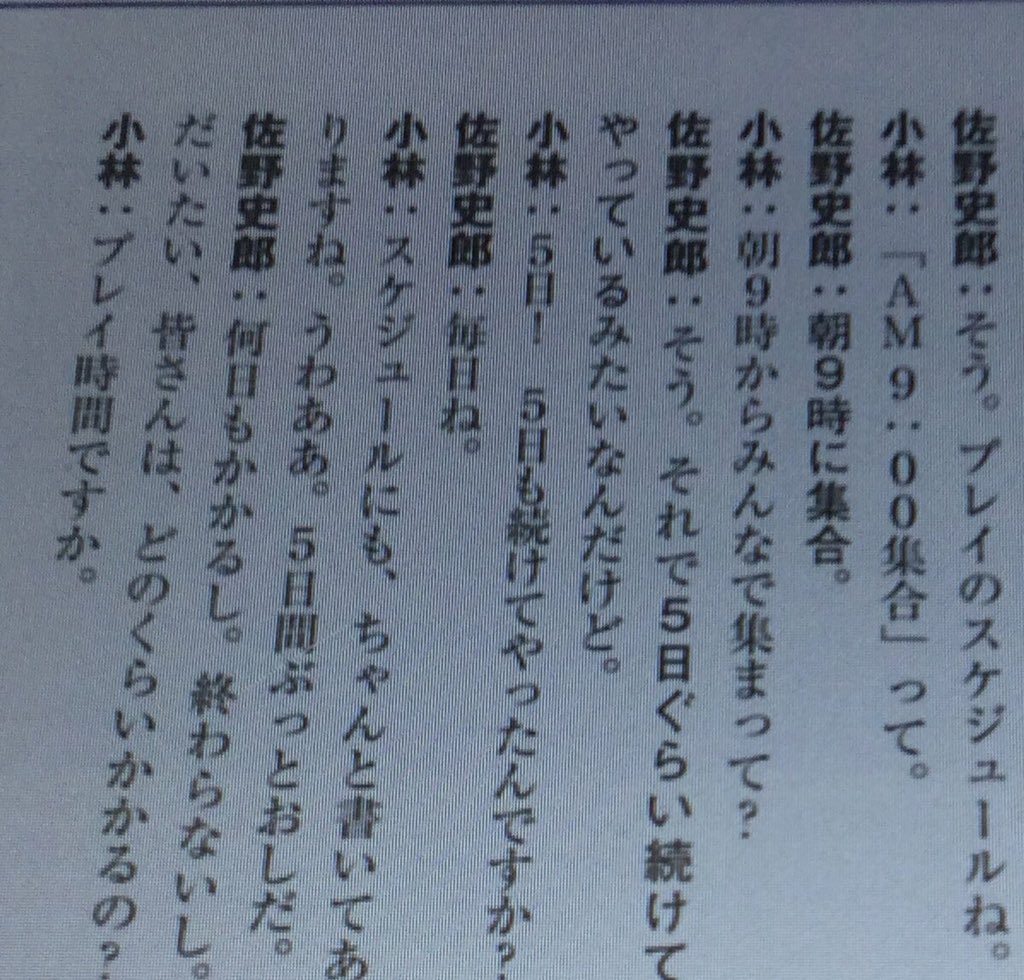 佐野史郎：そう。プレイのスケジュールね。
小林：「AM9：00集合」って。
佐野史郎：朝9時に集合。
小林：朝9時からみんなで集まって？
佐野史郎：そう。それで5日ぐらい続けて
やっているみたいなんだけど。
小林：5日！　5日も続けてやったんですか？
佐野史郎：毎日ね。
小林：スケジュールにも、ちゃんと書いてあ
りますね。うわああ。5日間ぶっとおしだ。
佐野史郎：何日もかかるし。終わらないし。
だいたい、皆さんは、どのくらいかかるの？
小林：プレイ時間ですか。